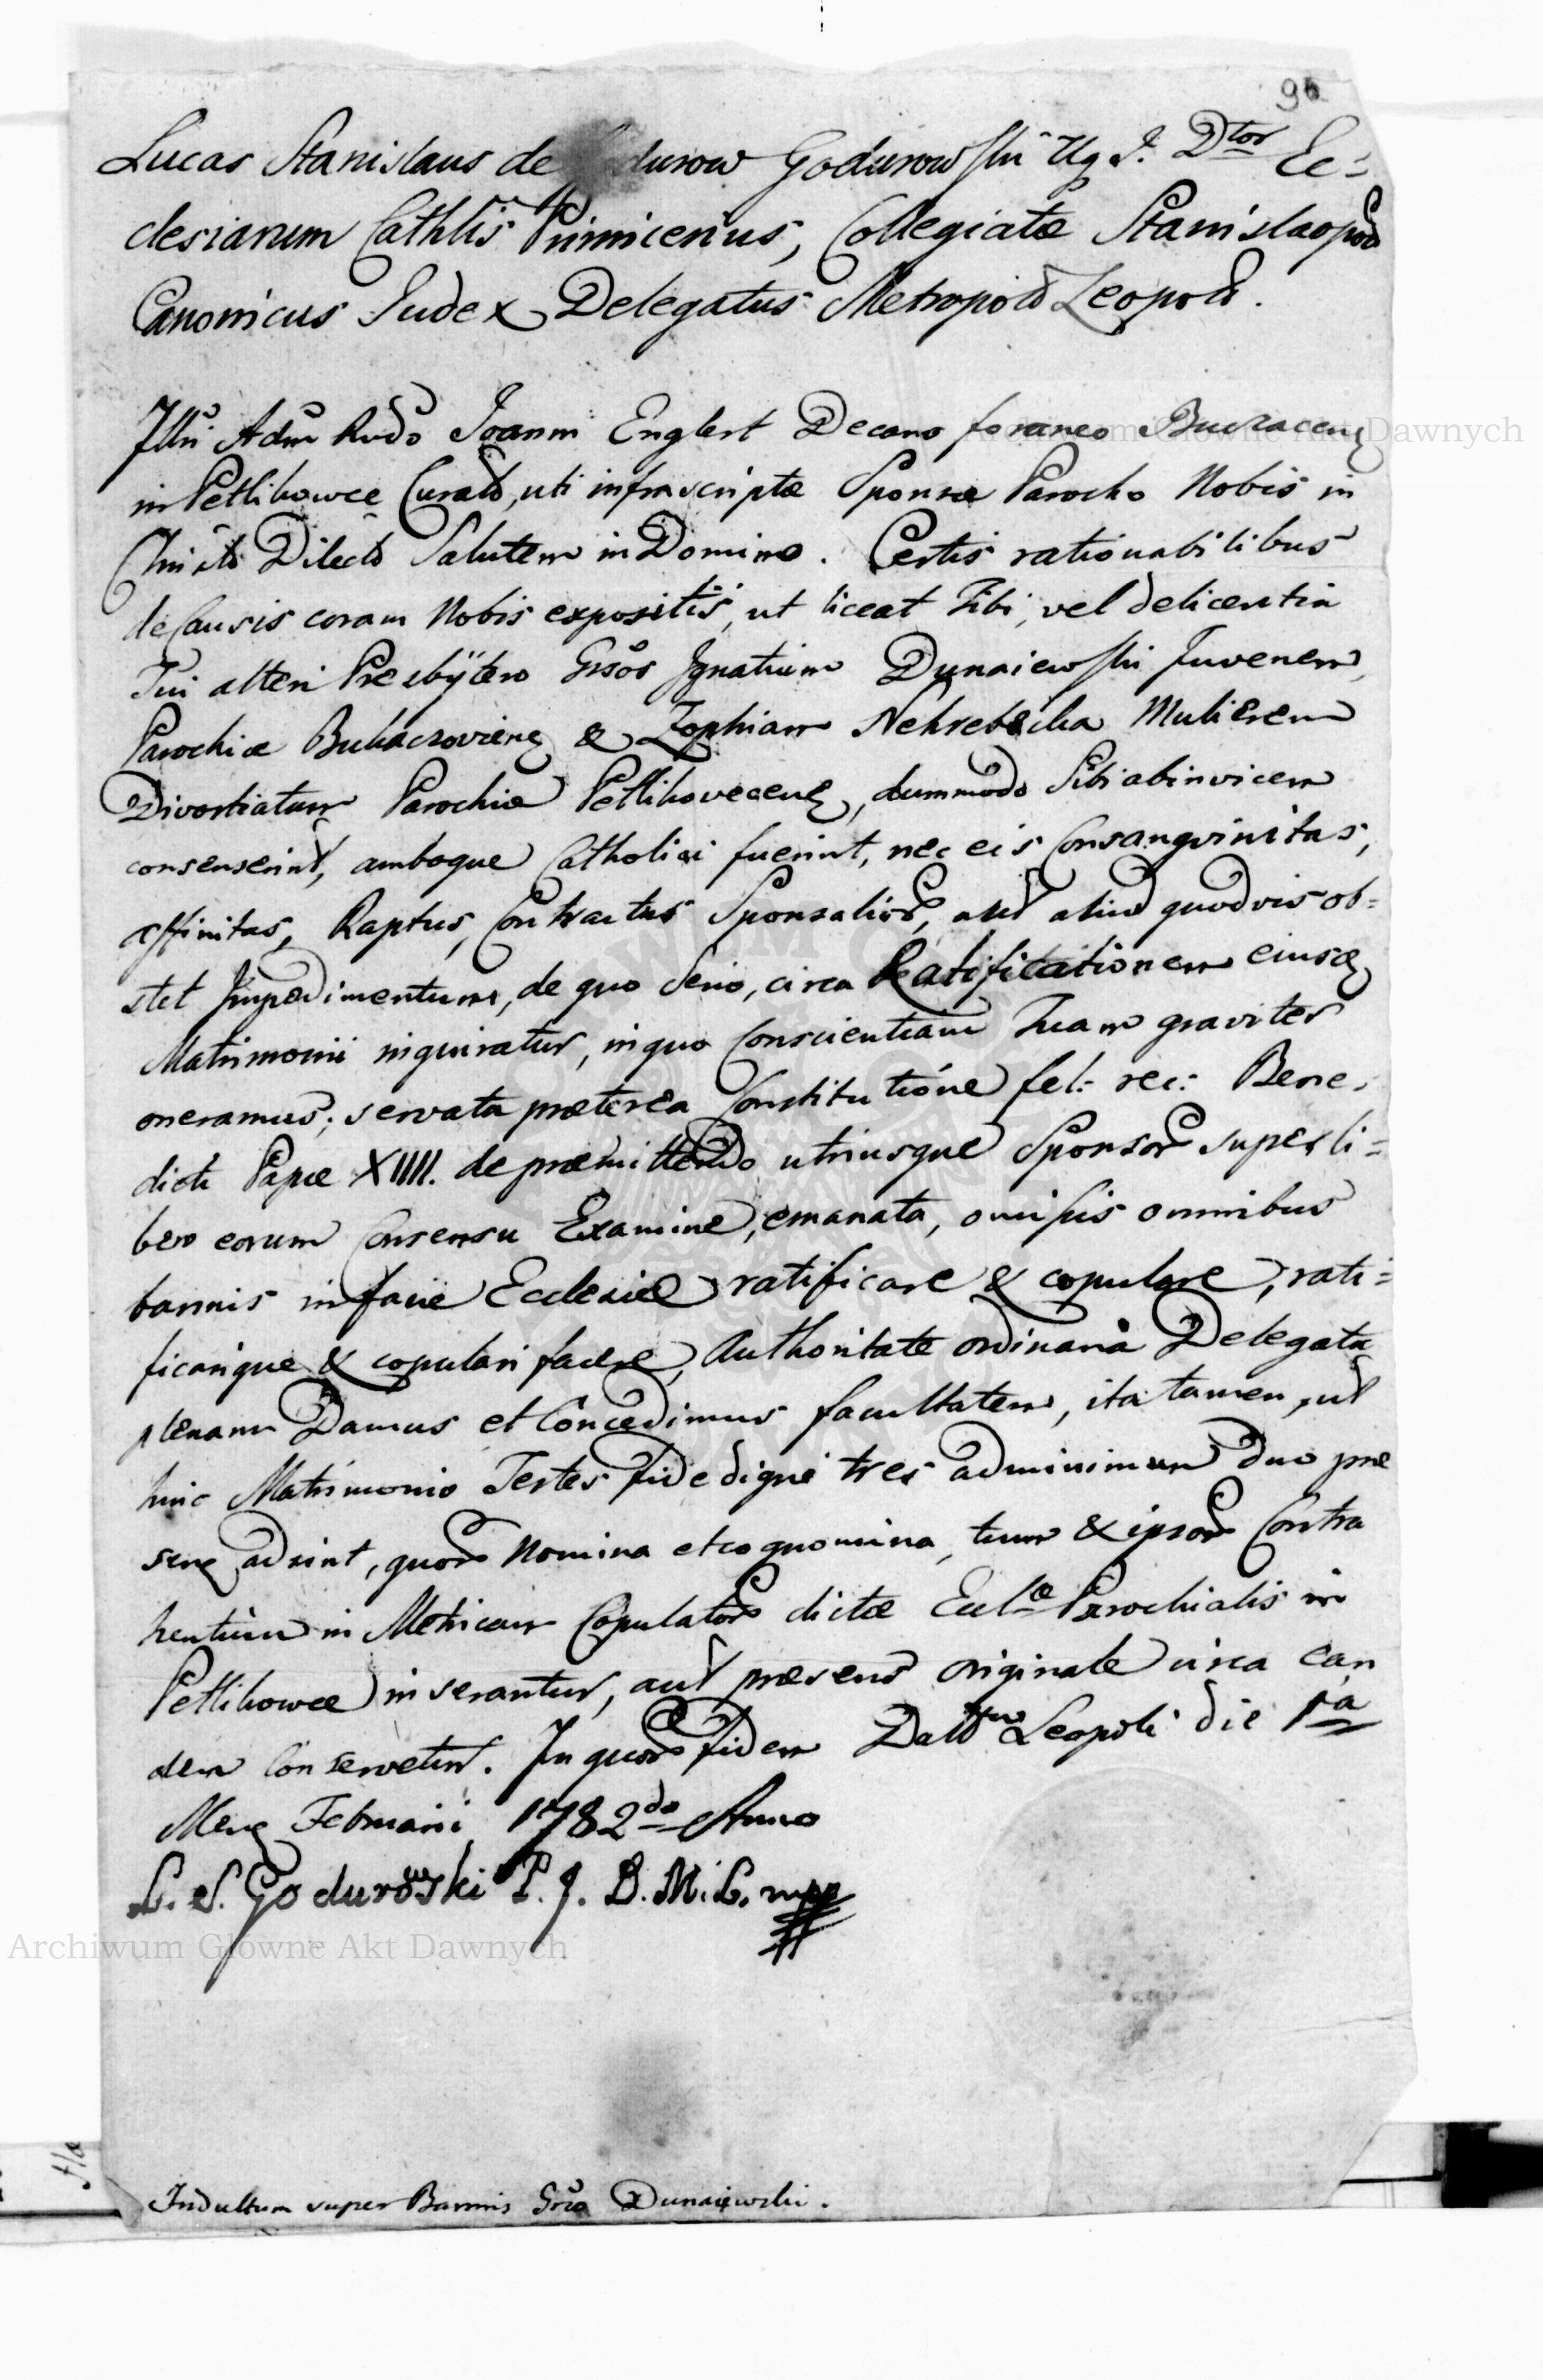 96
Lucas Stanislaus de durow Godurowski U. J. Dtor Ec=
clesiarum Cathlis Primicerius, Collegiatæ Stanislaopol
Canonicus Judex Delegatus Metropold Leopold.
Illri Adm Rvdo Joanni Englert Decano foraneo Buczacen
in Petlikowce Curato, uti infrascriptæ Sponsæ Parocho Nobis in
Christo Dilecto Salutem in Domino. Certis rationabilibus
de Causis coram Nobis expositis, ut liceat Tibi, vel de licentia
Tui alteri Presbÿtero Gsos Ignatium Dunaiewski Juvenem,
Parochiæ Buhaczoviens & Zophiam Nehrebecka Mulierem
Divortiatam Parochiæ Petlikovecens, dummodo Sibi abinvicem
consenserint, amboque Catholici fuerint, nec eis Consangvinitas,
affinitas, Raptus, Contractus Sponsalior, aut aliud quodvis ob=
stet Impedimentum, de quo Serio, circa Ratificationem eiusd
Matrimonii inquiratur, in quo Conscientiam Tuam graviter
oneramus; servata præterea Constitutióne fel: rec: Bene=
dicti Papæ XIIII. de præmittendo utriusque Sponsor super li=
bero eorum Consensu Examine, emanata, omissis omnibus
bannis in facie Ecclesiæ ratificare & copulare, rati=
ficarique & copulari facere, Authoritate ordinaria Delegata
plenam Damus et Concedimus facultatem, ita tamen, ut
huic Matrimonio Testes fide digni tres ad minimum duo præ
sens adsint, quor Nomina et cognomina, tum & ipsor Contra
hentium in Metricam Copulator dictæ Eccl-æ Parochialis in
Petlikowce inserantur, aut præsens originale circa ean
dem Conservetur. In quor fidem Dattum Leopoli die 1a
Mens Februarii 1782do Anno
L. S. Godurowski P. J. D. M. L. mpp
Indultum super Bannis Gso Dunaiewski.
Archiwum Główne Akt Dawnych